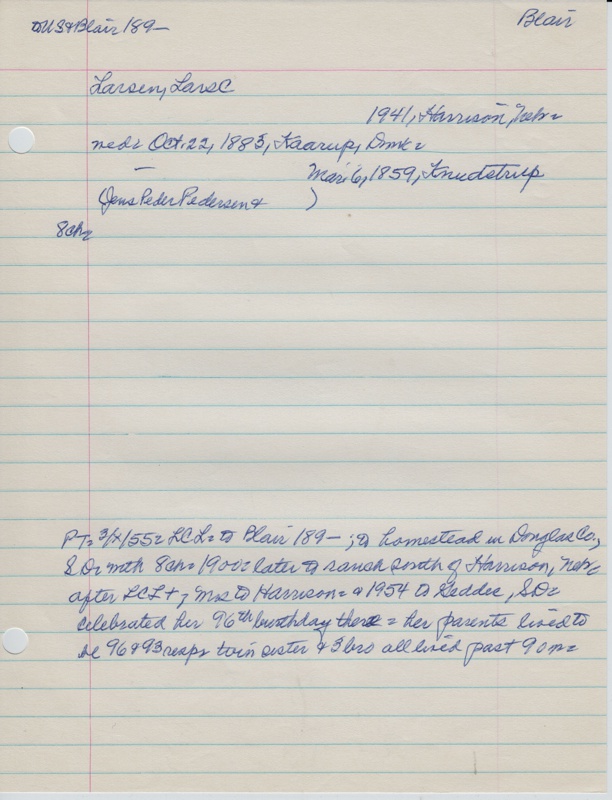 to US & Blair 189-
Blair
Larsen, Lars C
1941, Harrison, Neb=
med= Oct. 22, 1885, Kaarup, Dmk=
— Mar. 6, 1859, Knudstrup
Jens Peder Pedersen & )
8ch=
PT= 3/x/55= LCL= to Blair 189-; to homestead in Douglas Co.,
S.D= with 8ch= 1900= later to ranch south of Harrison, Neb=
after LCL +; Mrs to Harrison= & 1954 to Geddes, S.D=
celebrated her 96th birthday there= her parents lived to
be 96 & 93 resp= twin sister & 3 bro all lived past 90=